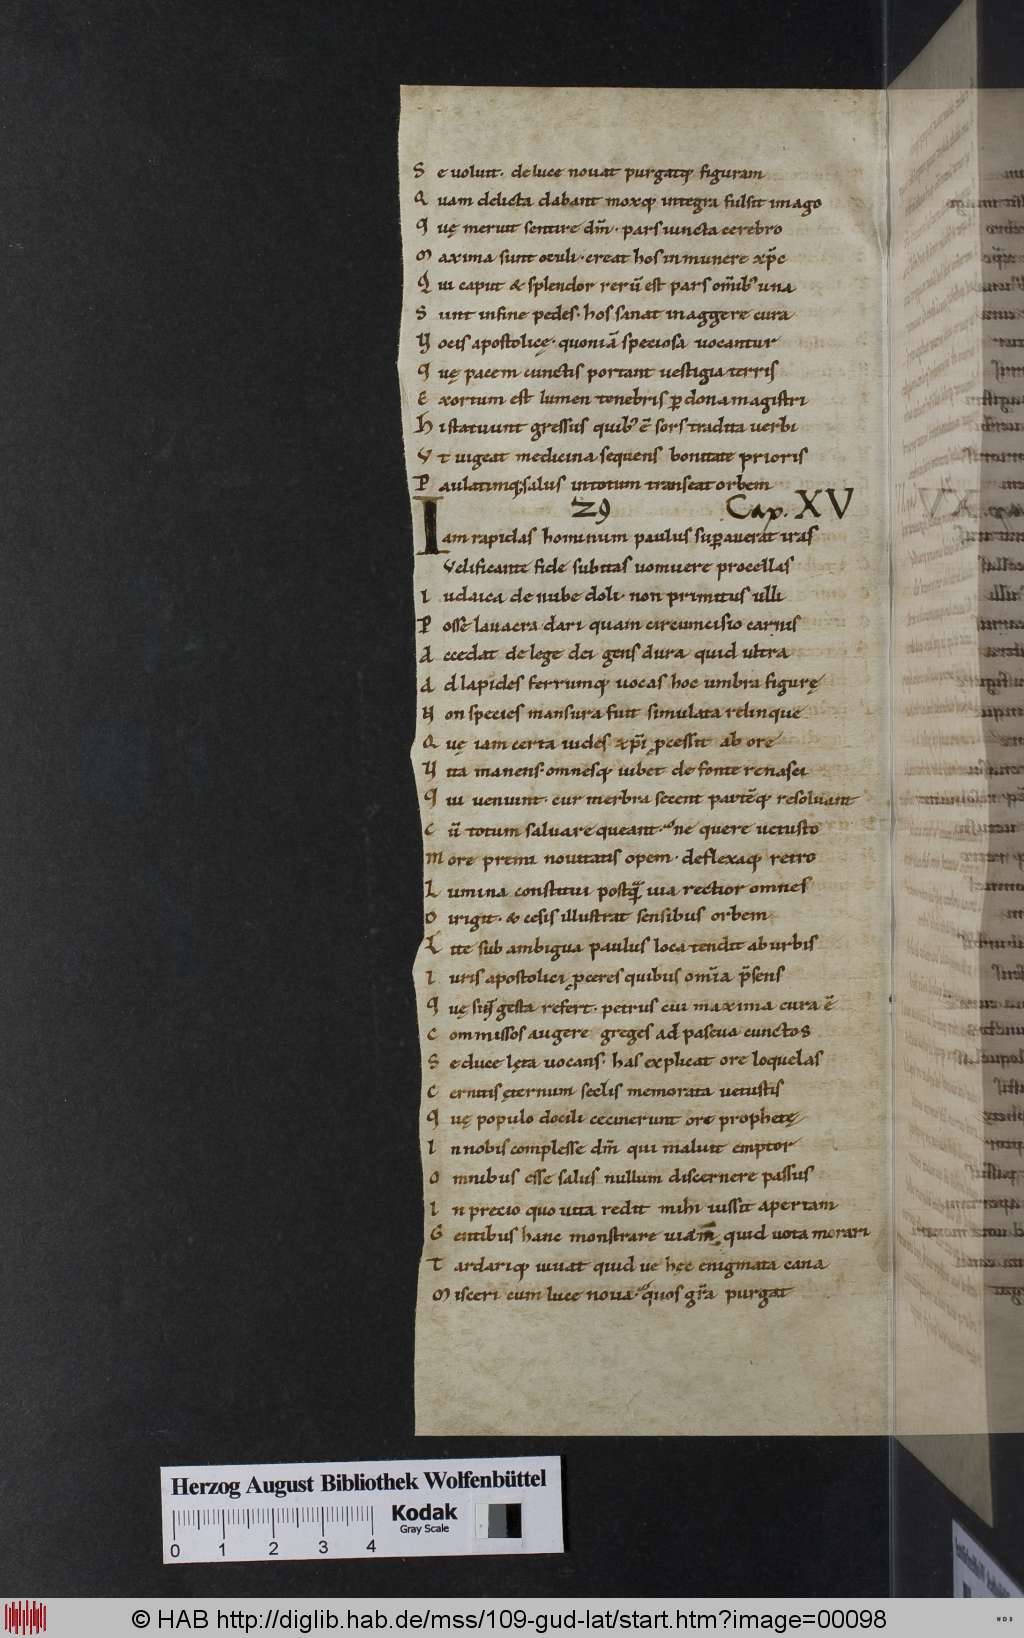 S e voluit. de luce novat purgatq; figuram
Q uam delicta dabant moxq; integra fulsit imago
Q uę meruit sentire dm̄. pars iuncta cerebro
M axima sunt oculi. creat hos in munere xp̄c
Q ui caput & splendor rerū est pars om̄ib; una
S unt in fine pedes. hos sanat in aggere cura
V ocis apostolicę. quoniā speciosa vocantur
Q uę pacem cunctis portant vestigia terris
E xortum est lumen tenebris ꝑ dona magistri
H i statuunt gressus quib; ē sors tradita verbi
V t vigeat medicina sequens bonitate prioris
P aulatimq; salus in totum transeat orbem
29 Cap. XV
I am rapidas hominum paulus suꝑaverat iras
Velificante fide subitas vomuere procellas
I udaica de nube doli. non primitus ulli
P osse lavacra dari quam circumcisio carnis
A ccedat de lege dei gens dura quid ultra
A d lapides ferrumq; vocas hoc umbra figurę
N on species mansura fuit simulata relinque
Q uę iam certa vides xp̄i ꝓcessit ab ore
V ita manens. omnesq; iubet de fonte renasci
Q ui veniunt. cur membra secent partēq; resolvant
C ū totum salvare queant. ne quere vetusto
M ore premi novitatis opem. deflexaq; retro
L umina constitui postq̄ via rectior omnes
D irigit. & cęsis illustrat sensibus orbem
L ite sub ambigua paulus loca tendit ab urbis
I uris apostolici ꝓceres quibus om̄ia p̄sens
Q uę sunt gesta refert. petrus cui maxima cura ē
C ommissos augere greges ad pascua cunctos
S e duce lęta vocans. has explicat ore loquelas
C ernitis ęternum sęclis memorata vetustis
Q uę populo docili cecinerunt ore prophetę
I n nobis complesse dm̄ qui maluit emptor
O mnibus esse salus nullum discernere passus
I n precio quo vita redit mihi iussit apertam
G entibus hanc monstrare viam. quid vota morari
T ardariq; iuvat quid ve hęc enigmata cana
M isceri cum luce nova. quos gr̄a purgat
Herzog August Bibliothek Wolfenbüttel
Kodak
Gray Scale
0 1 2 3 4
© HAB http://diglib.hab.de/mss/109-gud-lat/start.htm?image=00098
HAB